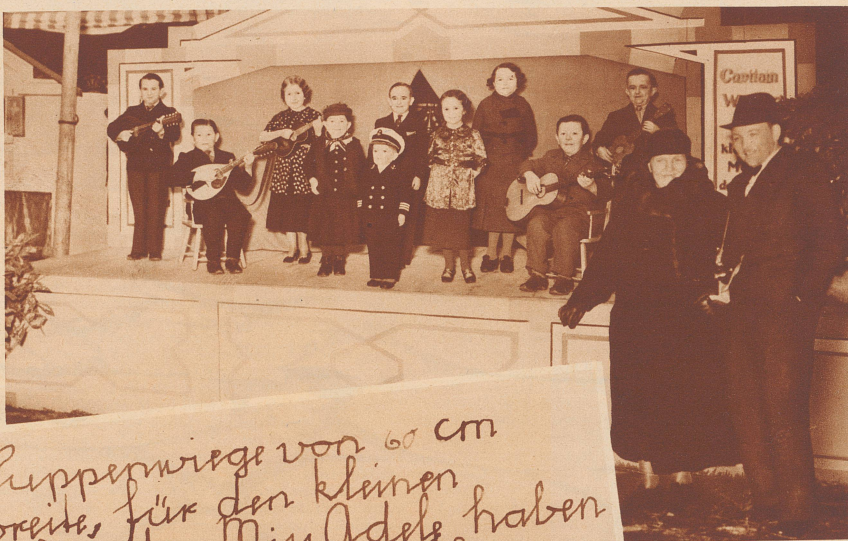 Castlam
W
kl
M
d
Puppenwiege von 60 cm
breite, für den kleinen
Miss Adele haben